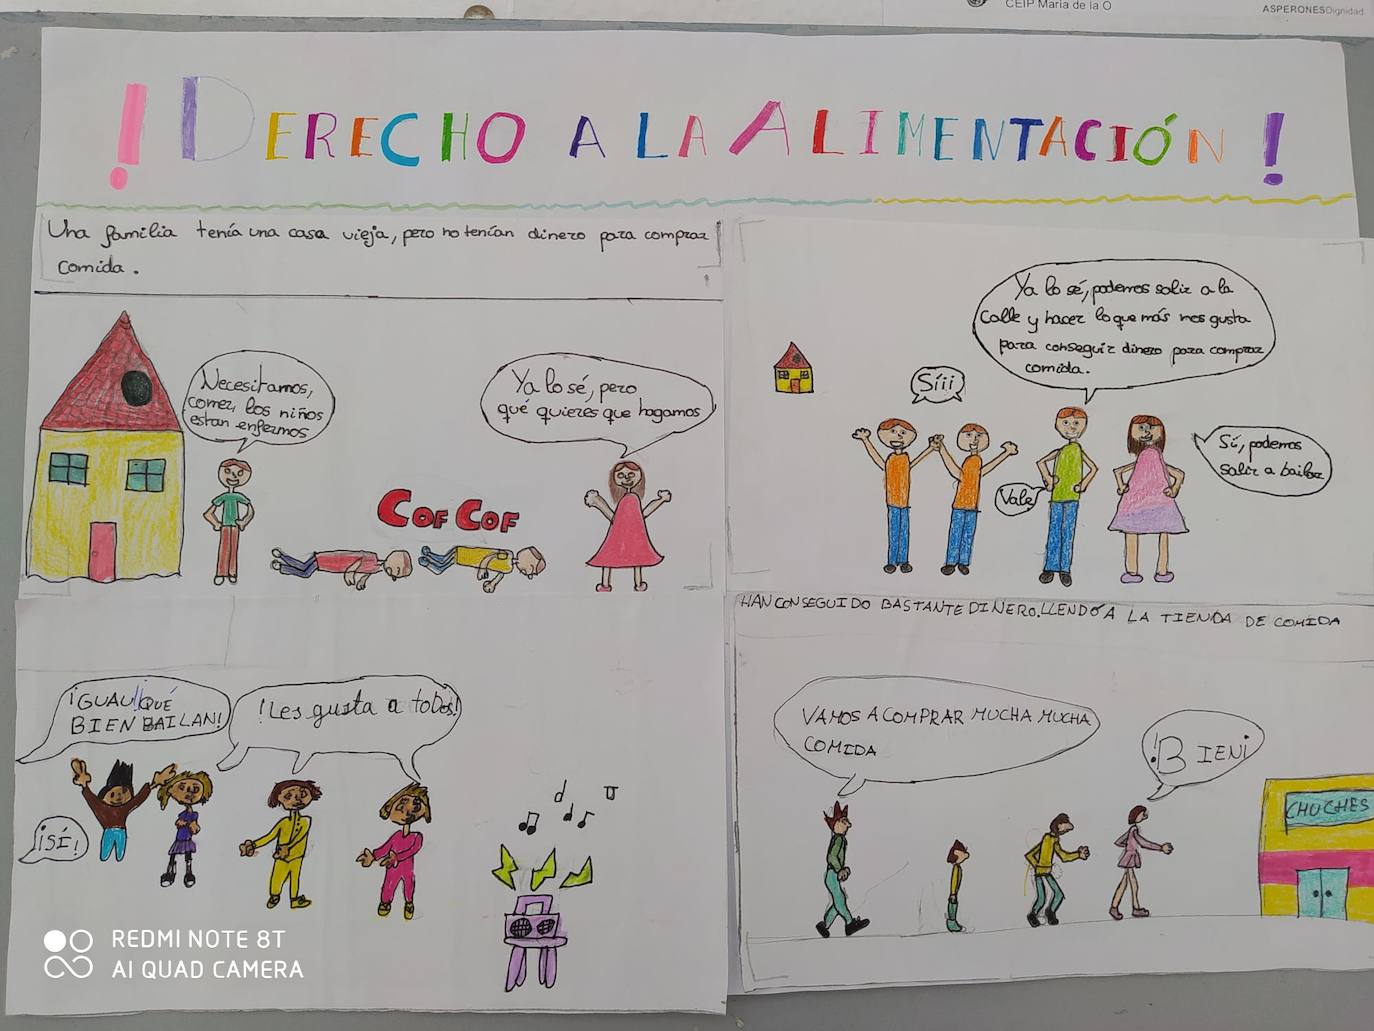 CEIP María de la O
ASPERONESDignidad
! DERECHO A LA ALIMENTACIÓN !
Una familia tenía una casa vieja, pero no tenían dinero para comprar
comida.
Necesitamos,
comer, los niños
estan enfermos
Ya lo sé, pero
qué quieres que hagamos
COF COF
Ya lo sé, podemos salir a la
calle y hacer lo que más nos gusta
para conseguir dinero para comprar
comida.
Síii
Vale
Sí, podemos
salir a bailar
¡GUAU! QUÉ
BIEN BAILAN!
¡SÍ!
!Les gusta a todos!
HAN CONSEGUIDO BASTANTE DINERO. LLENDÓ A LA TIENDA DE COMIDA
VAMOS A COMPRAR MUCHA MUCHA
COMIDA
!BIEN¡
CHUCHES
REDMI NOTE 8T
AI QUAD CAMERA